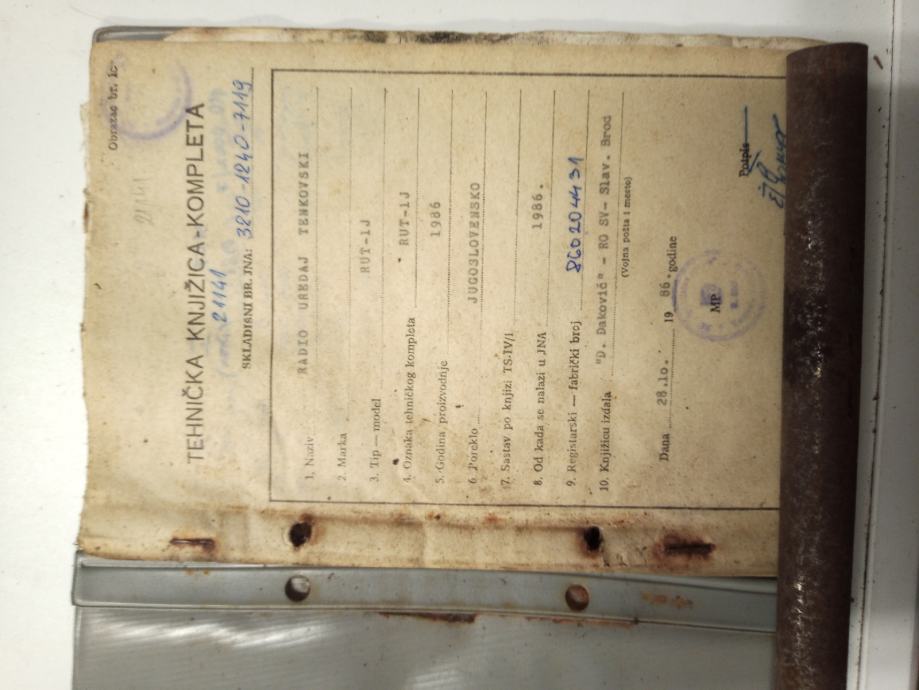 Obrazac br. 1c
21141
TEHNIČKA KNJIŽICA-KOMPLETA
21141
SKLADIŠNI BR. JNA: 3210-1240-7119
1. Naziv RADIO UREĐAJ TENKOVSKI
2. Marka
3. Tip — model RUT-1J
4. Oznaka tehničkog kompleta RUT-1J
5. Godina proizvodnje 1986
6. Poreklo JUGOSLOVENSKO
7. Sastav po knjizi TS-IV/1
8. Od kada se nalazi u JNA 1986.
9. Registarski — fabrički broj 860204431
10. Knjižicu izdala "Đ. Đaković" - RO SV- Slav. Brod
(Vojna pošta i mesto)
Dana 28.10. 19 86. godine
MP
Potpis